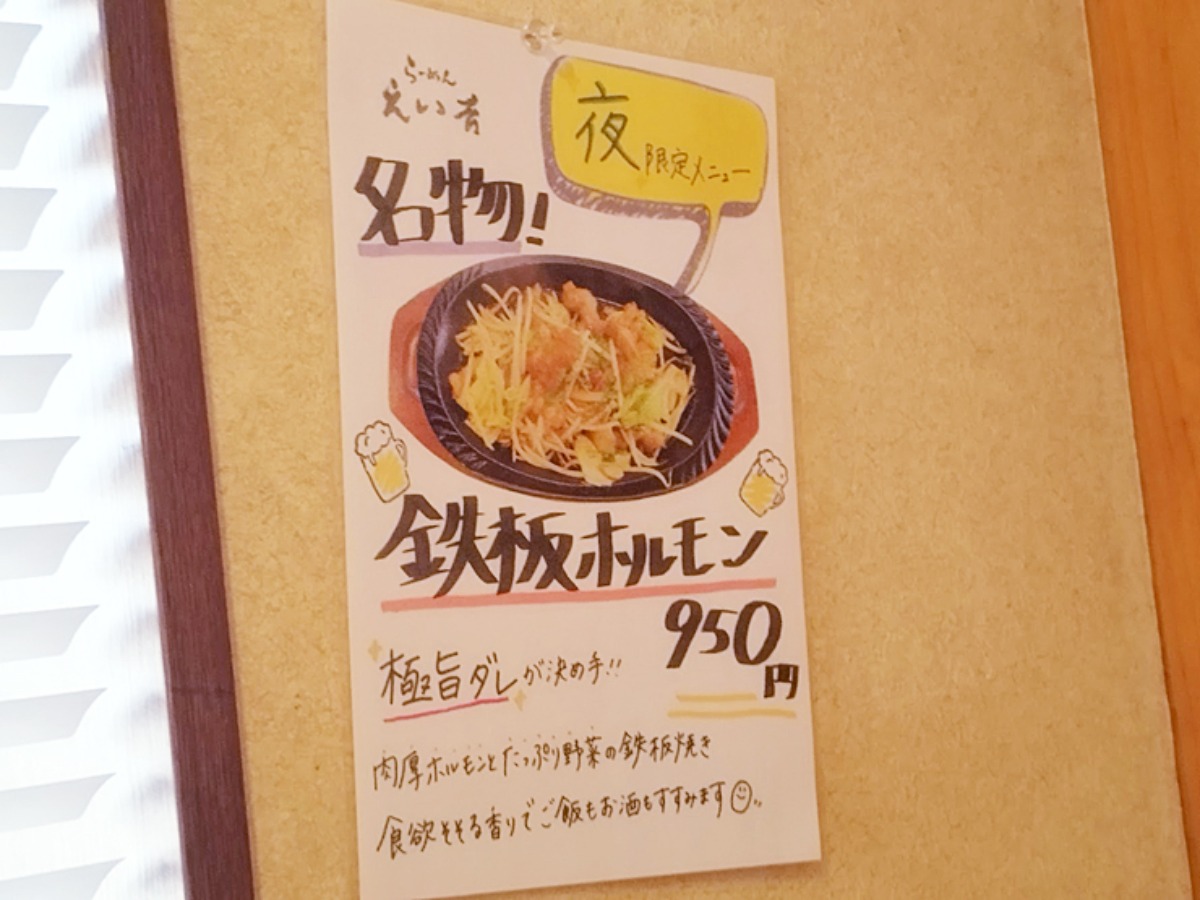 らーめん
えい吉
夜限定メニュー
名物!
鉄板ホルモン
950円
極旨ダレが決め手!!
肉厚ホルモンとたっぷり野菜の鉄板焼き
食欲そそる香りでご飯もお酒もすすみます